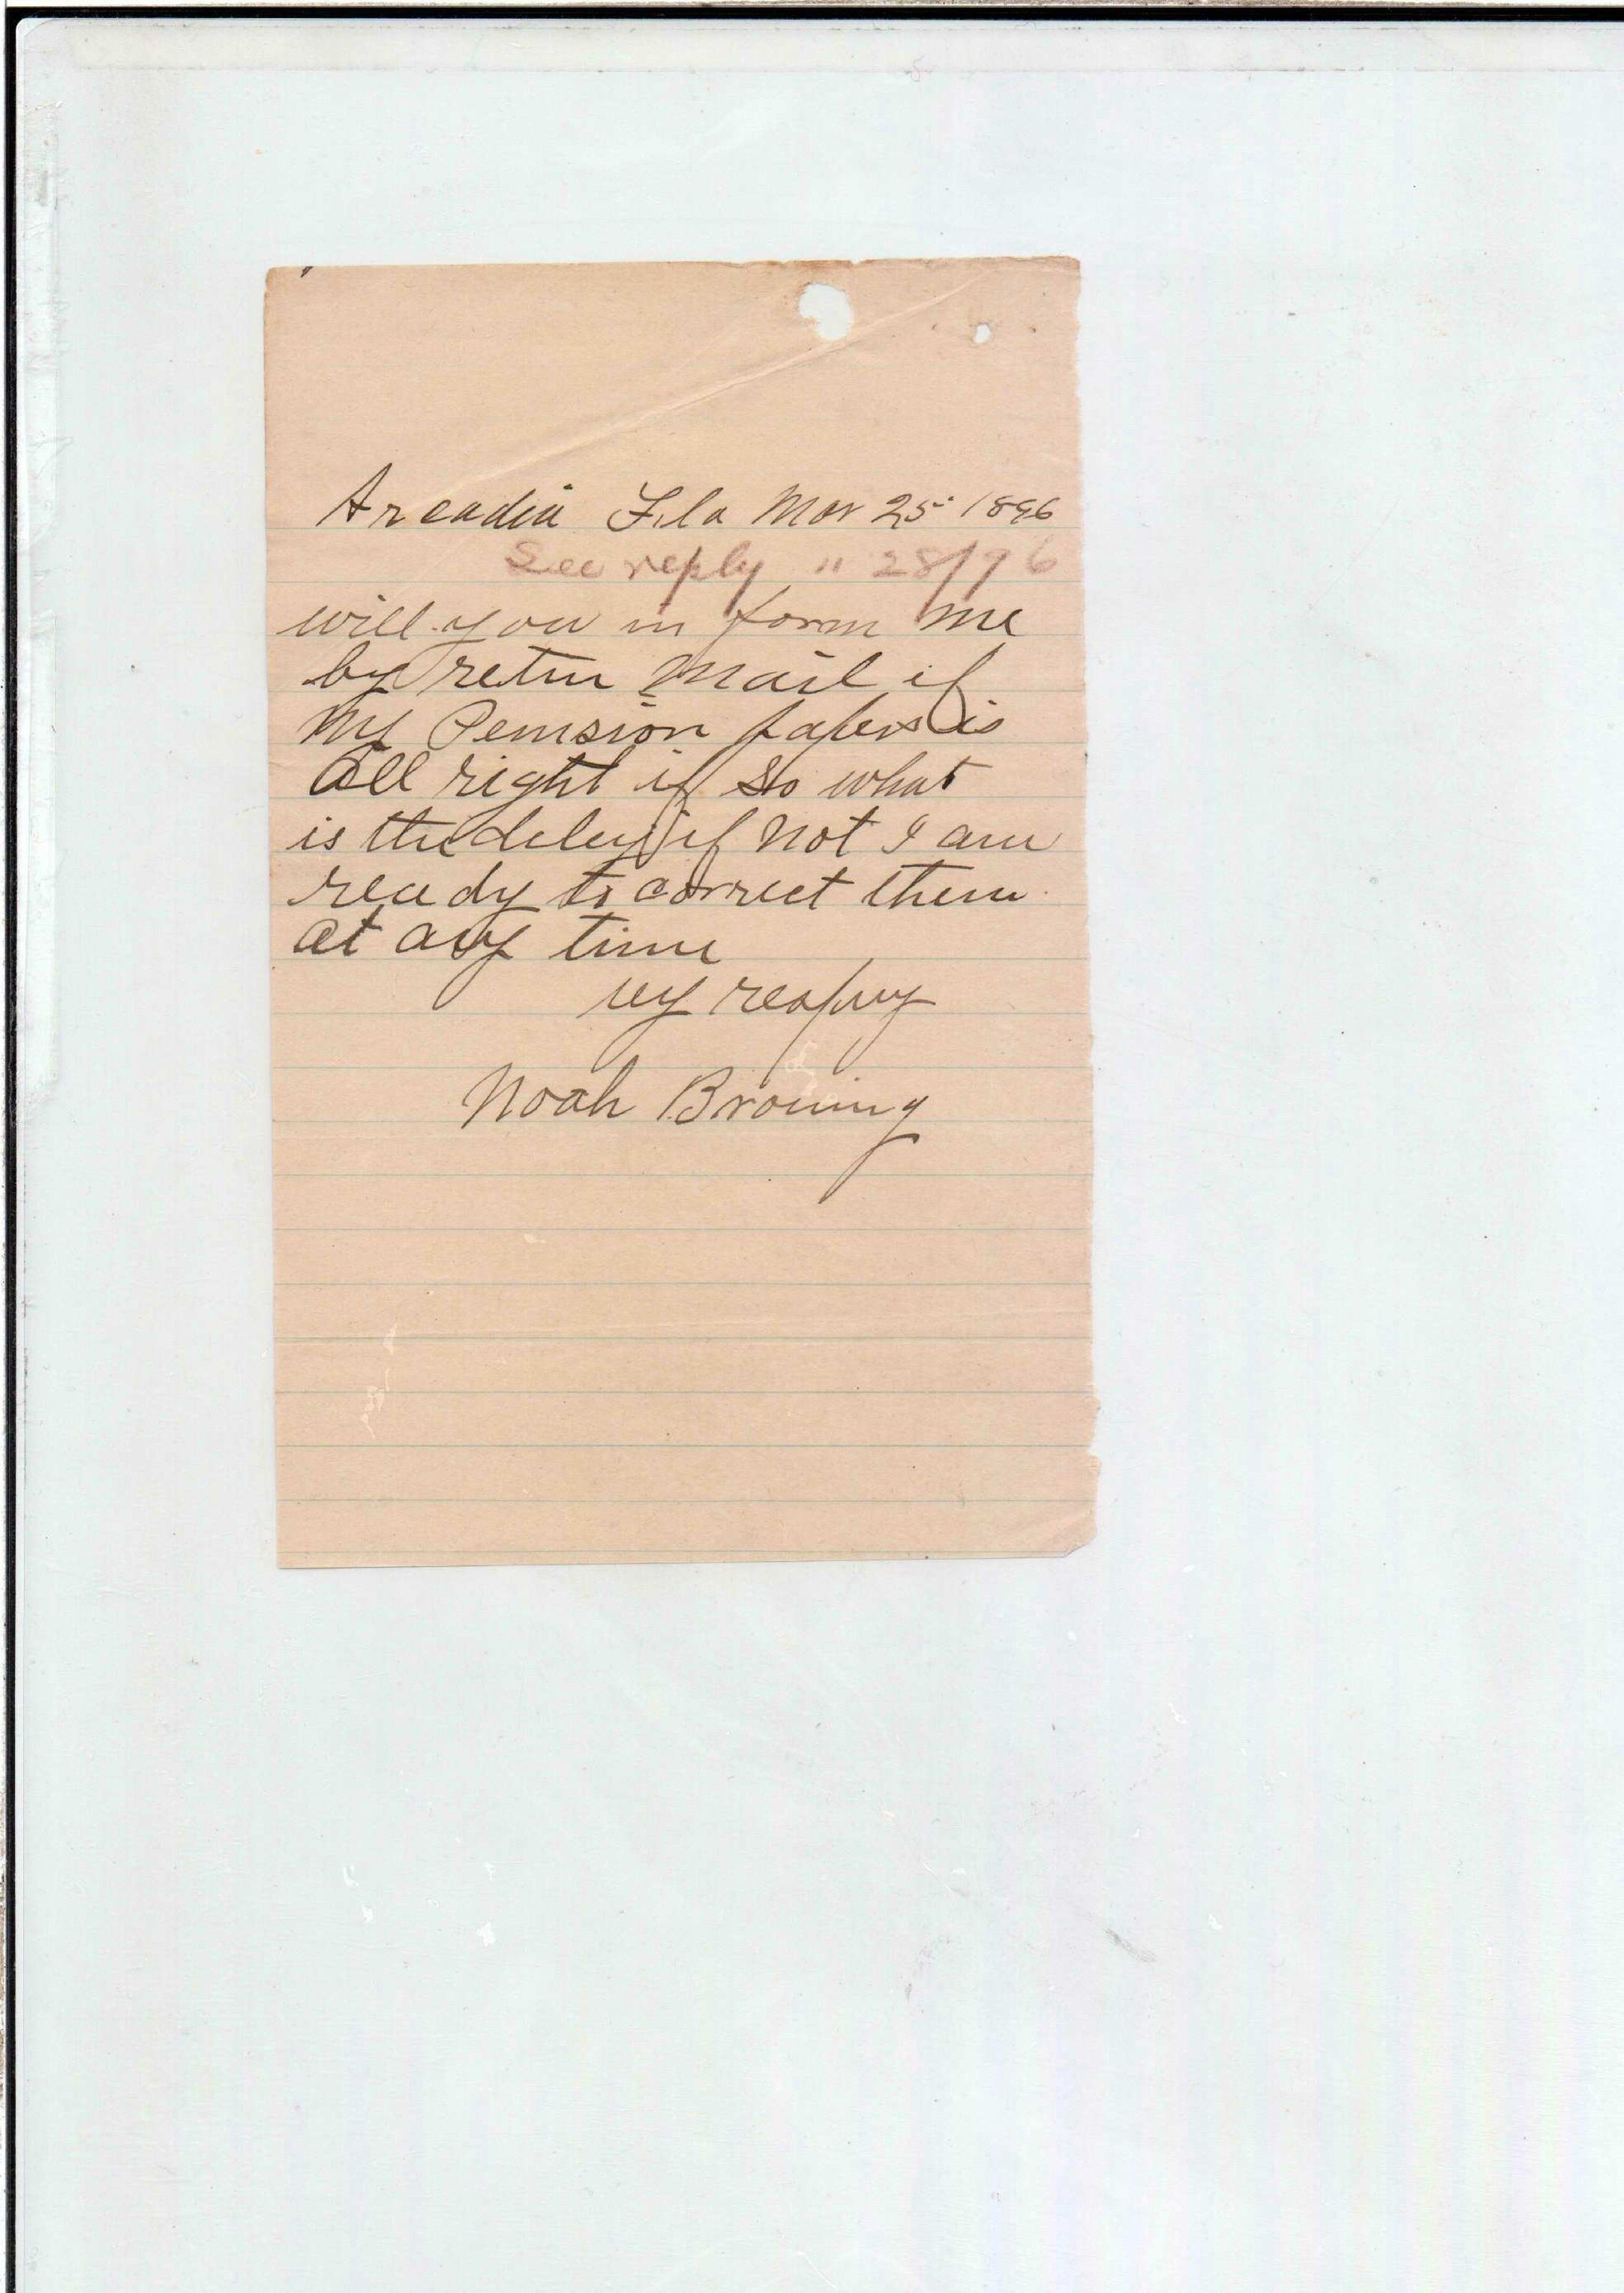 Arcadia Fla Mar 25 1896
See reply " 28/96
will you in form me
by retur mail if
My Pension papers is
all right if so what
is the deley if not I am
ready to correct them
at any time
vy
Noah Browing